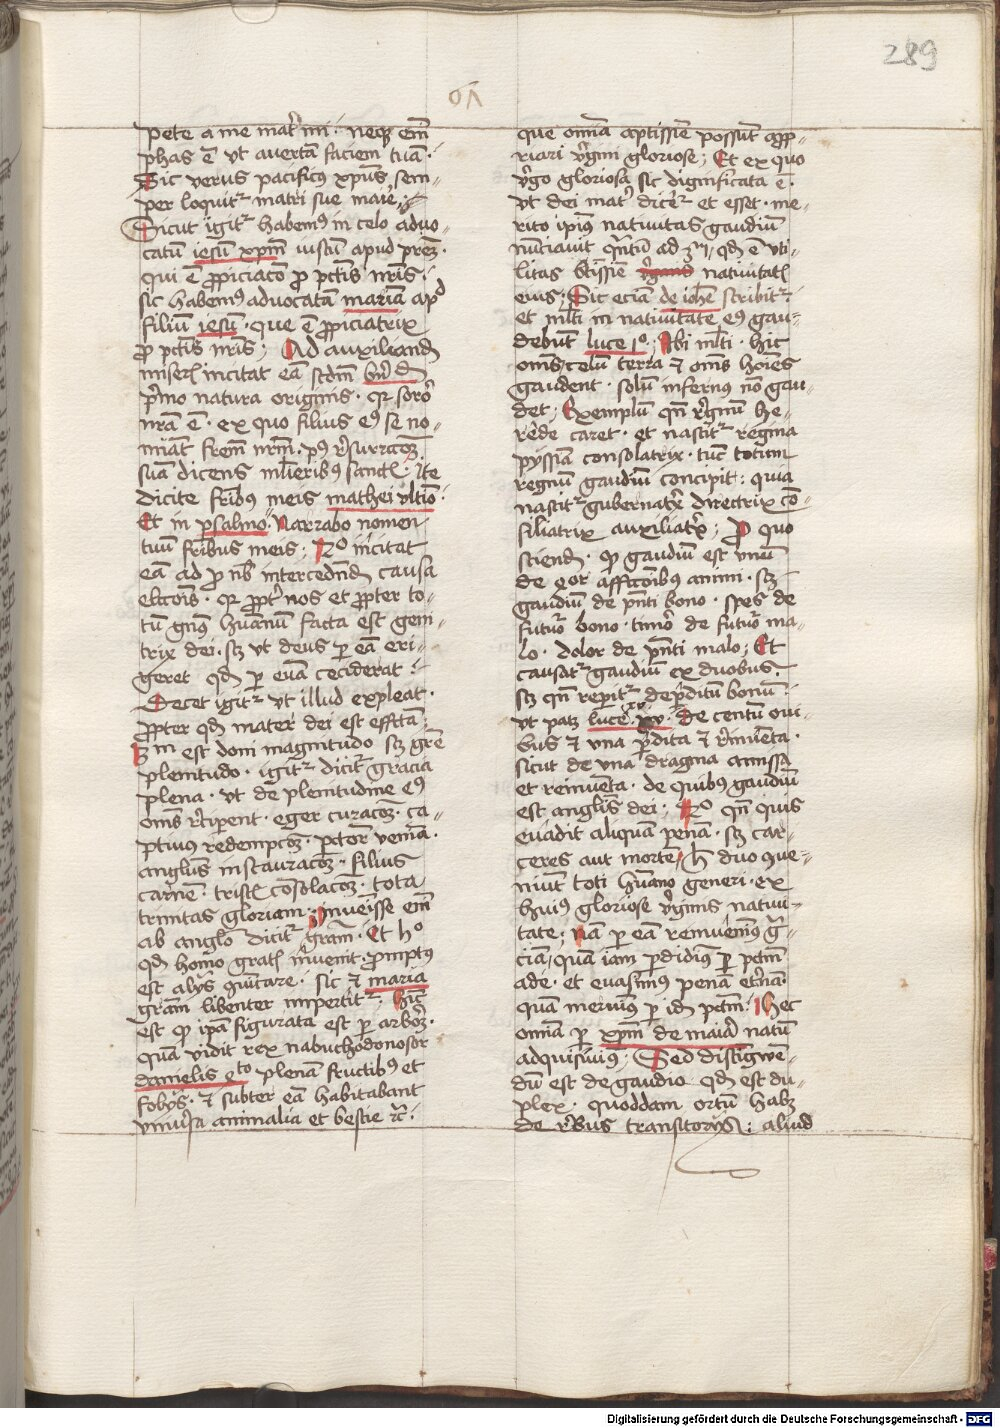 289
pete a me mat̄r mi · neq̄ȝ em̄
phas ē vt auertā faciem tuā ·
Sic verus pacificꝰ xp̄us sem-
per loquit᷑ matri sue marie
Sicut igit᷑ habemꝰ in celo aduo-
catū iesū xp̄m iustū apud prē᷑ ·
qui ē p̄piciatō p̄ pctīs nr̄is ·
sic habemꝰ aduocatā mariā ap᷑d
filiū iesū · que ē p̄piciatrix
p̄ pctīs nr̄is ; Ad auxiliand᷑
miser᷑ incitat eā scd᷑m
p̄mo natura originis · qr soror᷑
nr̄a ē · ex quo filius eꝰ se no-
mīat frēm nr̄m · pꝰ r̄surr̄coēȝ
suā dicens ml̄ieribꝰ sanct᷑ · Ite
dicite frībꝰ meis mathei vltīo ·
Et in psalmo · Narrabo nomen
tuū frībus meis ; 2o incitat
eā ad p̄ nb̄ intercedn̄d᷑ causa
elc̄cōis · qr p̄pt᷑ nos et p̄pter to-
tū gnꝰ hūanū facta est geni-
trix dei · sȝ vt deus p̄ eā eri-
geret qd᷑ p̄ euā ceciderat ·
Decet igit᷑ vt illud expleat ·
p̄pter qd᷑ mater dei est effctā ;
3m est doni magnitudo sȝ grē
plenitudo · igit᷑ dicit᷑ gracia
plena · vt de plenitudine eꝰ
om̄s r̄cipent · eger curacōȝ · ca-
ptiuꝰ redempcōȝ · pctor᷑ veniā ·
anglus instauracōȝ · filius
carnē · trist᷑ cōsolacōȝ · tota
trinitas gloriam · Inueīsse em̄
ab anglo dicit᷑ grām · Et ho
qd᷑ homo grat᷑ inuenit · promptꝰ
est alijs cōicare · sic et maria
grām libenter impertit᷑ · hīc
est qp̄ ipā figurata est p̄ arbor᷑ ·
quā vidit rex nabuchodonosor
danielis 4to plenā fructibꝰ et
folijs · et subter eā habitabant
vniuersa animalia et bestie rc̄ ·
que om̄ia aptissīe possūt app-
riari v᷑gini gloriose ; Et ex quo
v᷑go gloriosa sic dignificata ē ·
vt dei mat᷑ dicet᷑ et esset · me-
rito ipiꝰ natiuitas gaudiū
nūciauit qn̄tū ad 3m · qd᷑ ē vti-
litas btīssīe natiuitat᷑
eius ; Sic eciā de ioh̄e scribit᷑ ·
et ml̄ti in natiuitate eꝰ gau-
debūt luce 1o ; Ibi ml̄ti · hic
om̄s celū terra et om̄s hoīes
gaudent · solū infernꝰ nō gau-
det ; Exemplū qn̄ r̄gnū he-
rēde caret · et nascit᷑ regina
pyssīa consolatrix · tūc totum
regnū gaudiū concipit · quia
nascit᷑ gubernat᷑x directrix cō-
siliatrix auxiliat᷑x ; Pro quo
sciend᷑ · qp̄ gaudiū est vnū
de 4or affcōnibꝰ animi · sȝ
gaudiū de pn̄ti bono · spes de
futur᷑o bono · timor᷑ de futur᷑o ma-
lo · dolor de pn̄ti malo ; Et
causat᷑ gaudiū ex duobus ·
sȝ qn̄ reperit᷑ deperditū bonū ·
vt patȝ luce xv · De centū oui-
bus et vna p̄dita et r̄inuēta ·
sicut de vna dragma amissa
et reinuēta · de quibꝰ gaudiū
est anglis dei · 2o qn̄ quis
euadit aliquā penā · sȝ car-
ceres aut mortē · h̄ duo ꝯue-
niūt toti hūano generi · ex
huiꝰ gloriose v᷑ginis natiui-
tate ; Nā p̄ eā reinuenimꝰ grā-
ciā quā iam p̄didimꝰ p̄ pctm̄
ade · et euasimꝰ penā et᷑nā ·
quā meruimꝰ p̄ id᷑ pctm̄ · Hec
om̄ia p̄ xp̄m de maria natū
adquisiuimꝰ · Sed distingwen-
dū est de gaudio qd᷑ est du-
plex · quoddam ortū habȝ
de r̄bus transitorijs ; aliud
Digitalisierung gefördert durch die Deutsche Forschungsgemeinschaft - DFG